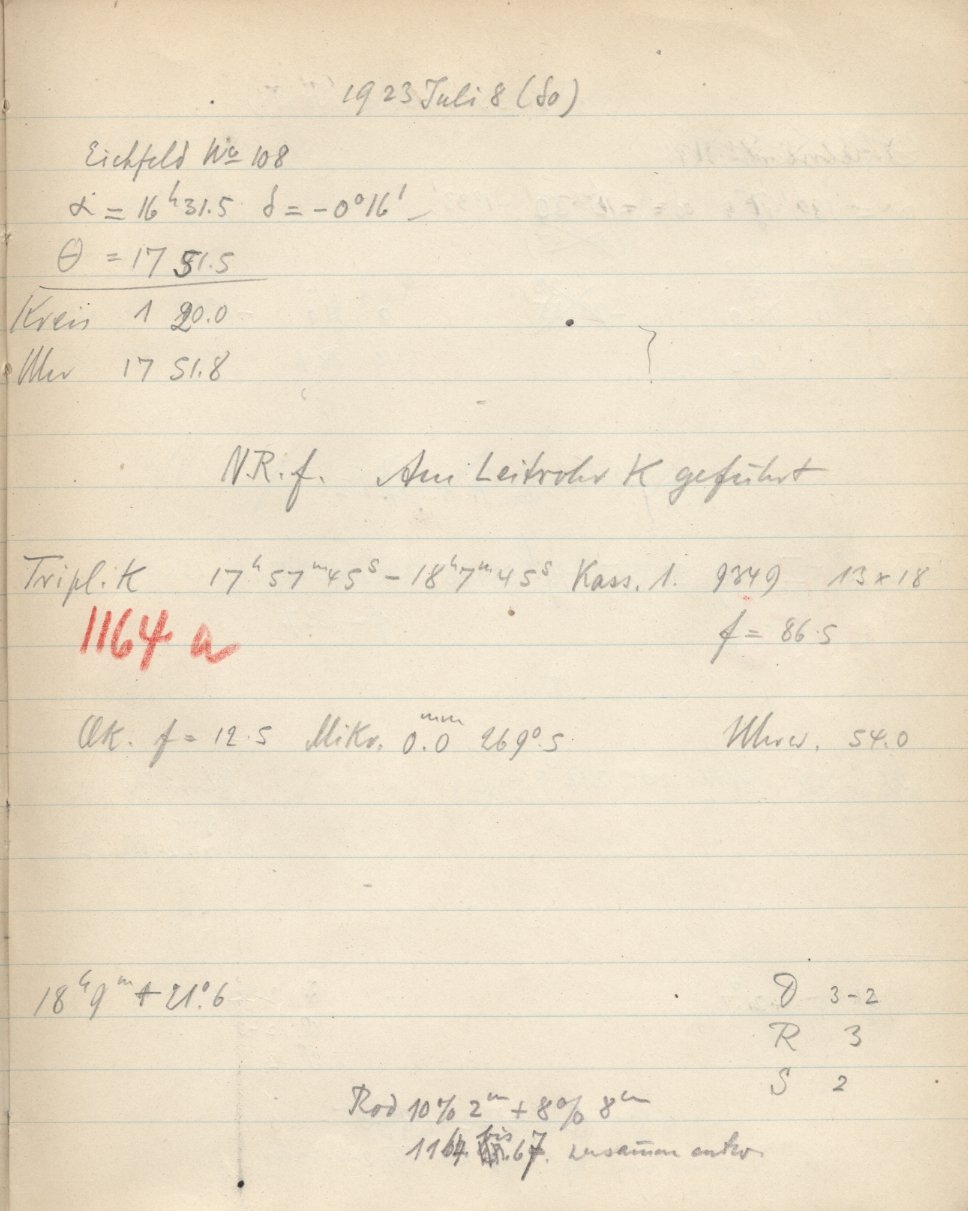 1923 Juli 8 (So)
Eichfeld No 108
α = 16ʰ31.5 δ = -0°16'
θ = 17 51.5
Kreis 1 20.0
Uhr 17 51.8
N.R.f. Am Leitrohr K geführt
Tripl. K 17ʰ57ᵐ45ˢ - 18ʰ7ᵐ45ˢ Kass. 1. 9349 13 x 18
1164 a
f = 86.5
Ok. f = 12.5 Mikr. 0.0ᵐᵐ 269°.5 Uhrw. 54.0
18ʰ9ᵐ + 21°.6
D 3-2
R 3
S 2
Rod 10% 2ᵐ + 8% 8ᵐ
1164 bis 67. zusammen entw.